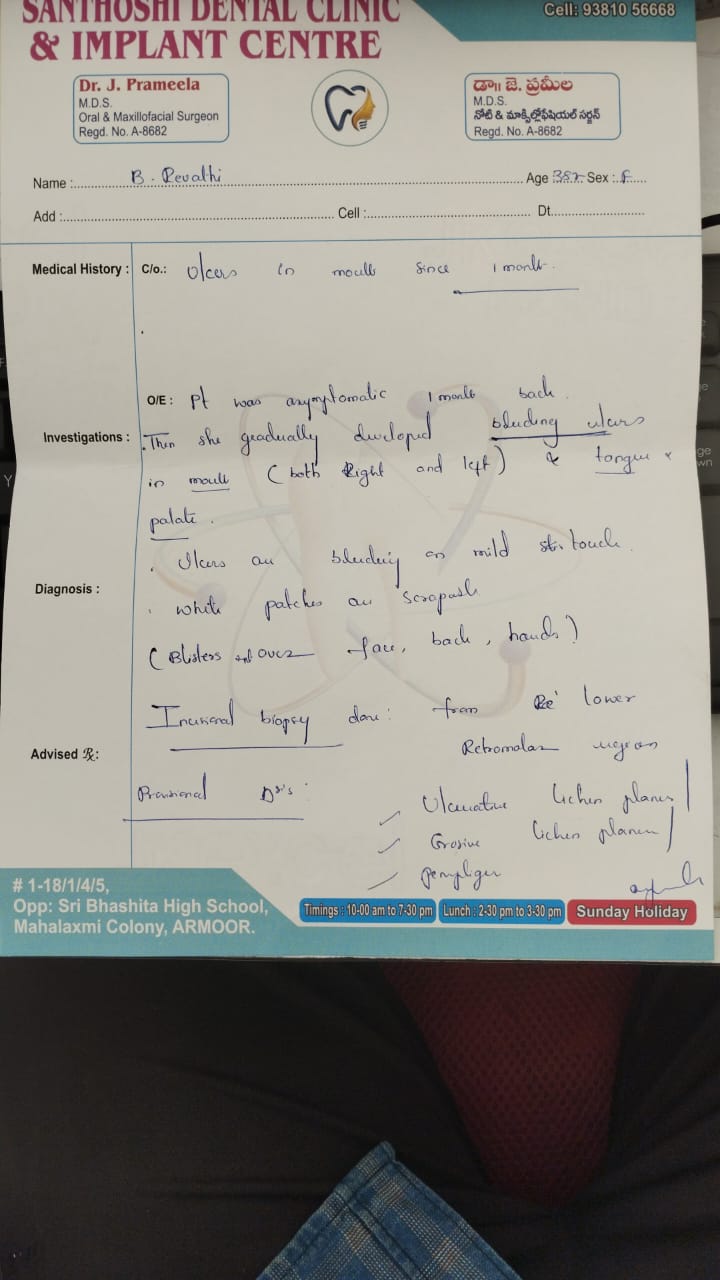 SANTHOSHI DENTAL CLINIC
& IMPLANT CENTRE
Cell: 93810 56668
Dr. J. Prameela
M.D.S.
Oral & Maxillofacial Surgeon
Regd. No. A-8682
డా॥ జె. ప్రమీల
M.D.S.
నోటి & మాక్సిల్లోఫేషియల్ సర్జన్
Regd. No. A-8682
Name : B. Revathi Age Sex : F
Add : Cell : Dt.
Medical History : C/o.: Ulcers in mouth since 1 month.
O/E : Pt was asymptomatic 1 month back.
Investigations : Then she gradually developed bleeding ulcers
in mouth (both Right and left) & tongue &
palate.
Ulcers are bleeding on mild touch.
Diagnosis :
white patches are
(Blisters over face, back, hands)
Incisional biopsy done: from lower
Retromolar region
Advised Rx:
Provisional
Ulcerative lichen planus /
Erosive lichen planus /
# 1-18/1/4/5,
Opp: Sri Bhashita High School,
Mahalaxmi Colony, ARMOOR.
Timings : 10-00 am to 7-30 pm
Lunch : 2-30 pm to 3-30 pm
Sunday Holiday